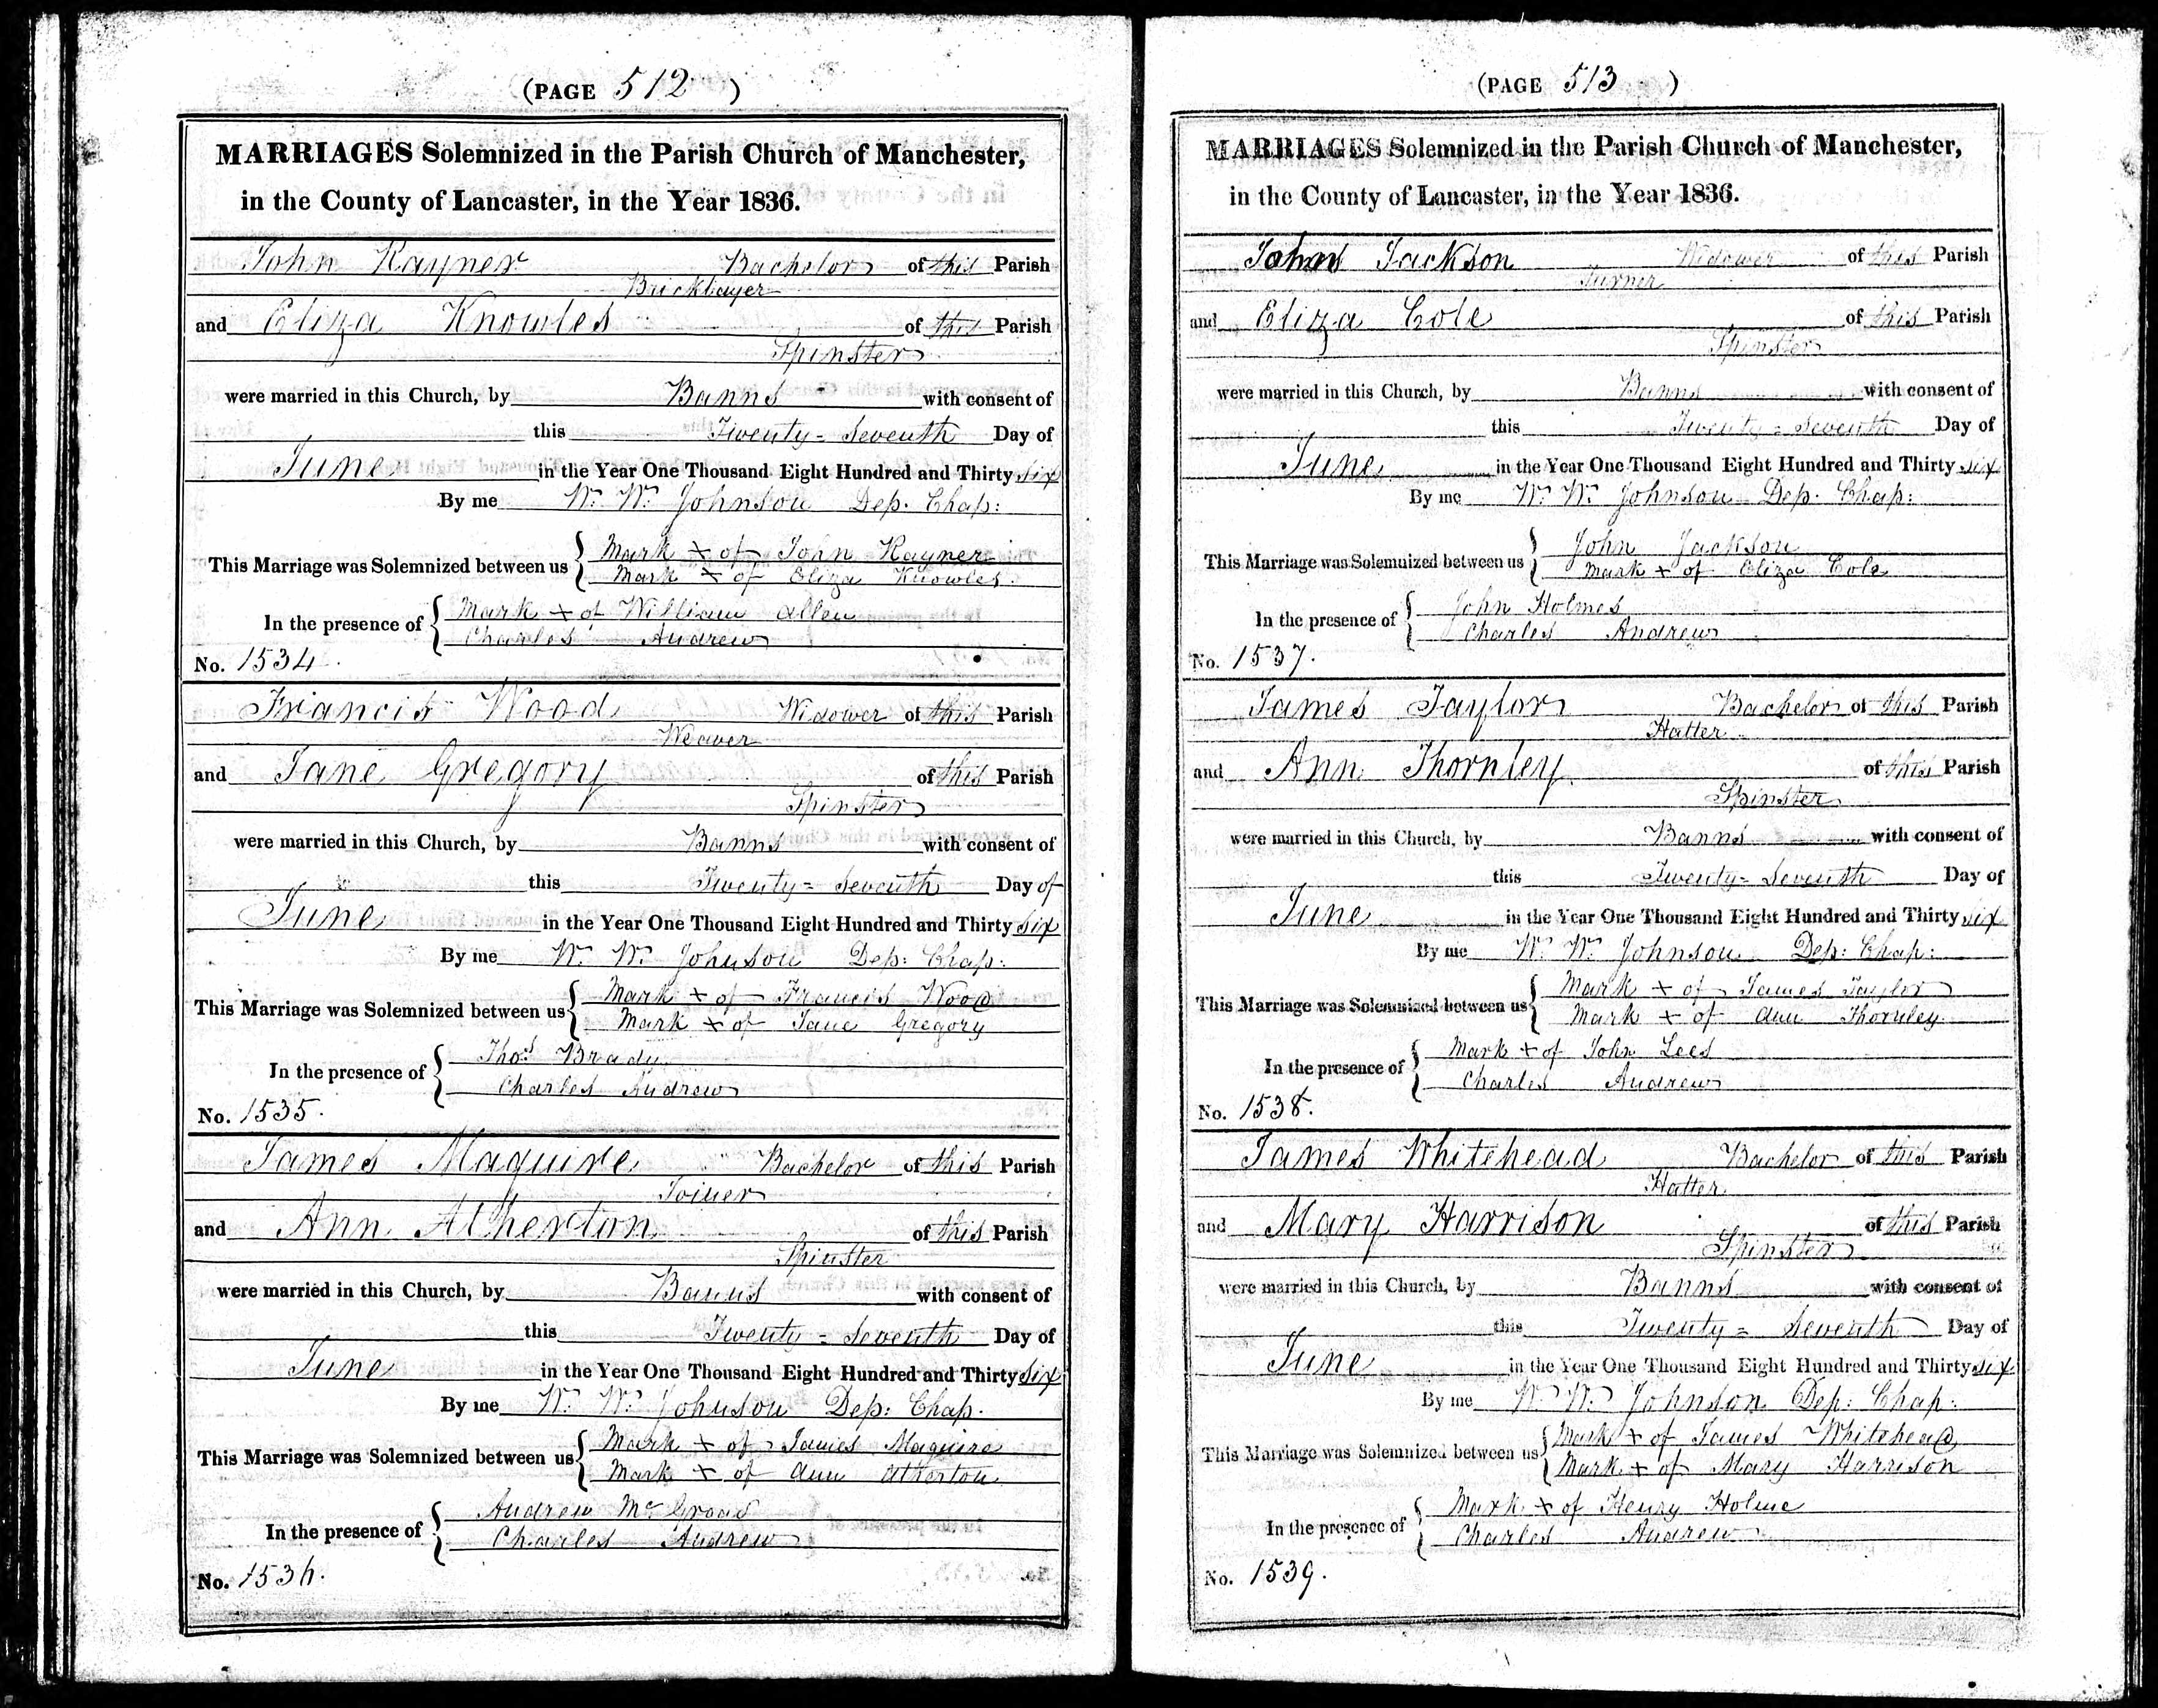 (PAGE 512 )
MARRIAGES Solemnized in the Parish Church of Manchester,
in the County of Lancaster, in the Year 1836.
John Rayner Bachelor of this Parish
Bricklayer
and Eliza Knowles of this Parish
Spinster
were married in this Church, by Banns with consent of
this Twenty = Seventh Day of
June in the Year One Thousand Eight Hundred and Thirty six
By me Wm. Wm. Johnson Dep. Chap:
This Marriage was Solemnized between us { Mark + of John Rayner
Mark + of Eliza Knowles
In the presence of { Mark + of William Allen
Charles Andrew
No. 1534.
Francis Wood Widower of this Parish
Weaver
and Jane Gregory of this Parish
Spinster
were married in this Church, by Banns with consent of
this Twenty = Seventh Day of
June in the Year One Thousand Eight Hundred and Thirty six
By me Wm. Wm. Johnson Dep: Chap:
This Marriage was Solemnized between us { Mark + of Francis Wood
Mark + of Jane Gregory
In the presence of { Thos. Brady
Charles Andrew
No. 1535.
James Maguire Bachelor of this Parish
Joiner
and Ann Atherton of this Parish
Spinster
were married in this Church, by Banns with consent of
this Twenty = Seventh Day of
June in the Year One Thousand Eight Hundred and Thirty six
By me Wm. Wm. Johnson Dep: Chap.
This Marriage was Solemnized between us { Mark + of James Maguire
Mark + of Ann Atherton
In the presence of { Andrew
Charles Andrew
No. 1536.
(PAGE 513 )
MARRIAGES Solemnized in the Parish Church of Manchester,
in the County of Lancaster, in the Year 1836.
John Jackson Widower of this Parish
Turner
and Eliza Cole of this Parish
Spinster
were married in this Church, by Banns with consent of
this Twenty = Seventh Day of
June in the Year One Thousand Eight Hundred and Thirty six
By me Wm. Wm. Johnson Dep. Chap:
This Marriage was Solemnized between us { John Jackson
Mark + of Eliza Cole
In the presence of { John Holmes
Charles Andrew
No. 1537.
James Taylor Bachelor of this Parish
Hatter
and Ann Thornley of this Parish
Spinster
were married in this Church, by Banns with consent of
this Twenty = Seventh Day of
June in the Year One Thousand Eight Hundred and Thirty six
By me Wm. Wm. Johnson Dep: Chap:
This Marriage was Solemnized between us { Mark + of James Taylor
Mark + of Ann Thornley
In the presence of { Mark + of John Lees
Charles Andrew
No. 1538.
James Whitehead Bachelor of this Parish
Hatter
and Mary Harrison of this Parish
Spinster
were married in this Church, by Banns with consent of
this Twenty = Seventh Day of
June in the Year One Thousand Eight Hundred and Thirty six
By me Wm. Wm. Johnson Dep: Chap:
This Marriage was Solemnized between us { Mark + of James Whitehead
Mark + of Mary Harrison
In the presence of { Mark + of Henry Holme
Charles Andrew
No. 1539.